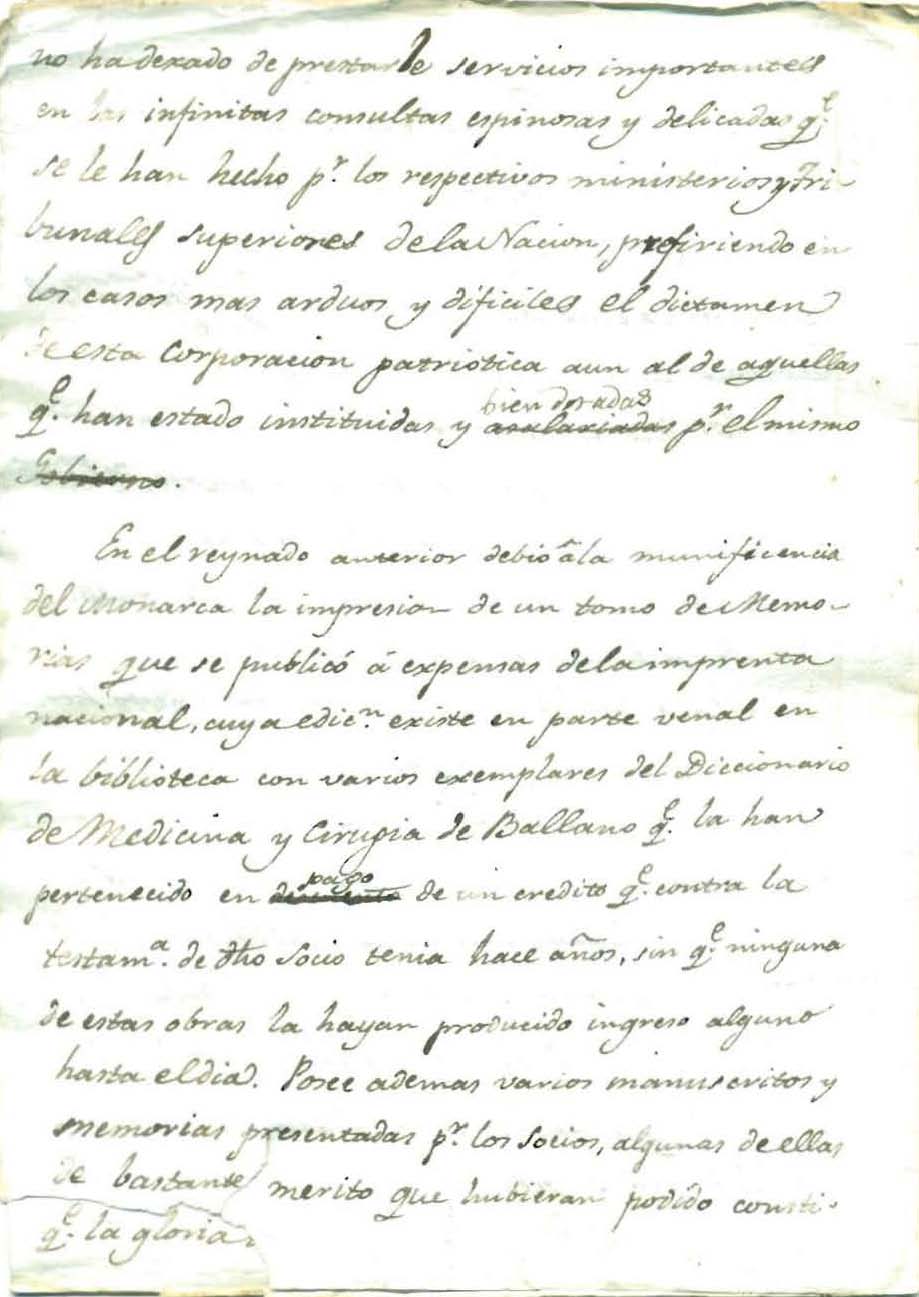 no ha dexado de prestarle servicios importantes
en las infinitas consultas espinosas y delicadas q.e
se le han hecho p.r los respectivos ministerios y Tri-
bunales superiores de la Nacion, prefiriendo en
los casos mas arduos y dificiles el dictamen
de esta Corporacion patriótica aun al de aquellas
bien doradas
q.e han estado instituidas y asalariadas p.r el mismo
Gobierno.
En el reynado anterior debió á la munificencia
del Monarca la impresion de un tomo de Memo-
rias que se publicó á expensas de la imprenta
nacional, cuya edic.n existe en parte venal en
la biblioteca con varios exemplares del Diccionario
de Medicina y Cirugia de Ballano q.e la han
pago
pertenecido en descuento de un credito q.e contra la
testam.a de dho Socio tenia hace años, sin q.e ninguna
de estas obras la hayan producido ingreso alguno
hasta el dia. Posee ademas varios manuscritos y
memorias presentadas p.r los Socios, algunas de ellas
de bastante merito que hubieran podido consti-
q.e la gloria